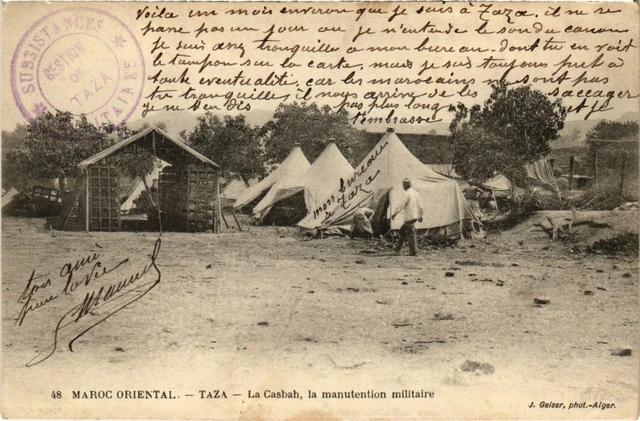 Voila un mois environ que je suis à Taza. il ne se
passe pas un jour ou je n'entende le son du canon
je suis assez tranquille a mon bureau. dont tu en voit
le tampon sur la carte, mais je suis toujours pret à
toute eventualité, car les marocains ne sont pas
tres tranquille, il nous arrive de les saccager
je ne t'en dès pas plus long et je
t'embrasse
SUBSISTANCES
MILITAIRES
GESTION
DE
TAZA
mon bureau
a Taza
ton ami
pour la vie
48 MAROC ORIENTAL. — TAZA — La Casbah, la manutention militaire
J. Geiser, phot.-Alger.